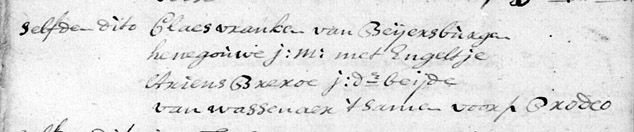 selfden dito Claes vranken van Beijersburgen
henegouwe j:m: met Engeltje
Ariens Breroe j:d: beijde
van wassenaer t'samen voors Prodeo